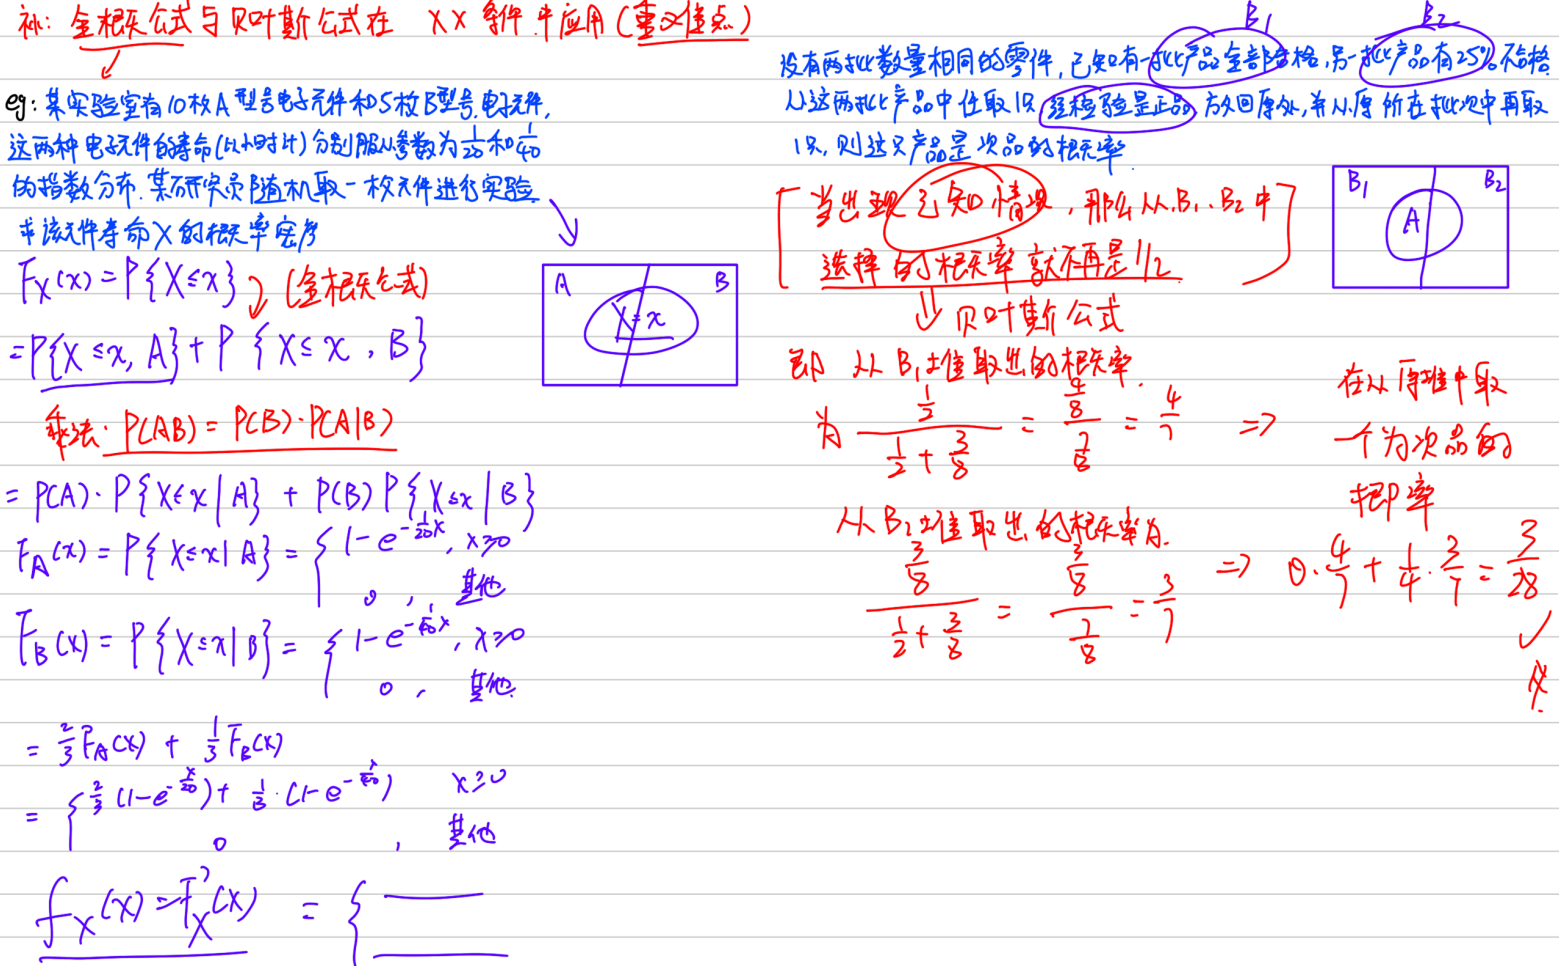 补: 全概公式与贝叶斯公式在 XX 条件中应用(重难点)
eg: 某实验室有10枚A型号电子元件和5枚B型号电子元件,
这两种电子元件的寿命(以小时计)分别服从参数为1/20和1/40
的指数分布.某研究员随机取一枚元件进行实验
求该元件寿命X的概率密度
F_X(x)=P{X≤x} (全概公式)
=P{X≤x, A}+P{X≤x, B}
乘法: P(AB)=P(B)·P(A|B)
=P(A)·P{X≤x|A}+P(B)P{X≤x|B}
F_A(x)=P{X≤x|A}={1-e^{-1/20 x}, x≥0
0, 其他
F_B(x)=P{X≤x|B}={1-e^{-1/40 x}, x≥0
0, 其他
=2/3 F_A(x)+1/3 F_B(x)
={2/3(1-e^{-x/20})+1/3·(1-e^{-x/40}) x≥0
0, 其他
f_X(x)=F'_X(x)={
A B
X=x
B1 B2
设有两批数量相同的零件,已知有一批产品全部合格,另一批产品有25%不合格
从这两批产品中任取1只,经检验是正品,放回原处,并从原所在批次中再取
1只,则这只产品是次品的概率
[当出现已知情况,那么从B1、B2中
选择的概率就不再是1/2]
⇓贝叶斯公式
B1 B2
A
即 从B1堆取出的概率.
为 (1/2)/(1/2+3/8)=(4/8)/(7/8)=4/7 ⇒
从B2堆取出的概率为.
(3/8)/(1/2+3/8)=(3/8)/(7/8)=3/7
在从原堆中取
一个为次品的
概率
⇒ 0·4/7+1/4·3/7=3/28 ✓